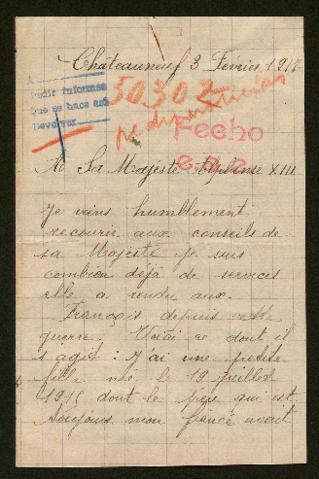 Chateauneuf 3 Février 191
A
Pedir informes
Que se hace así
Devolver
50302
Fecho
A Sa Majesté Alphonse XIII
Je viens humblement
recourir aux conseils de
sa Majesté je sais
combien déjà de services
elle a rendu aux
Français depuis cette
guerre. Voici ce dont il
s'agit : j'ai une petite
fille née le 19 juillet
1916 dont le père qui est
toujours mon fiancé avait